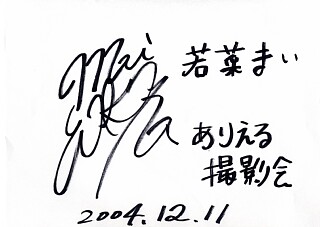 Mai
若菜まい
ありえる
撮影会
2004.12.11